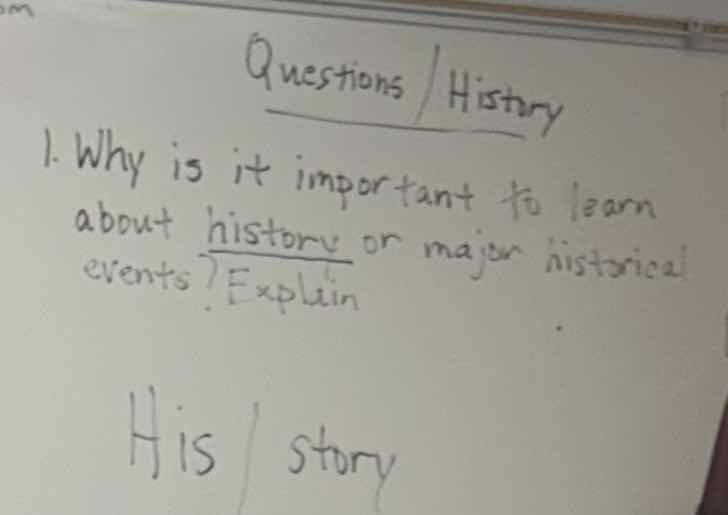 om
Questions / History
1. Why is it important to learn
about history or major historical
events? Explain
His / story